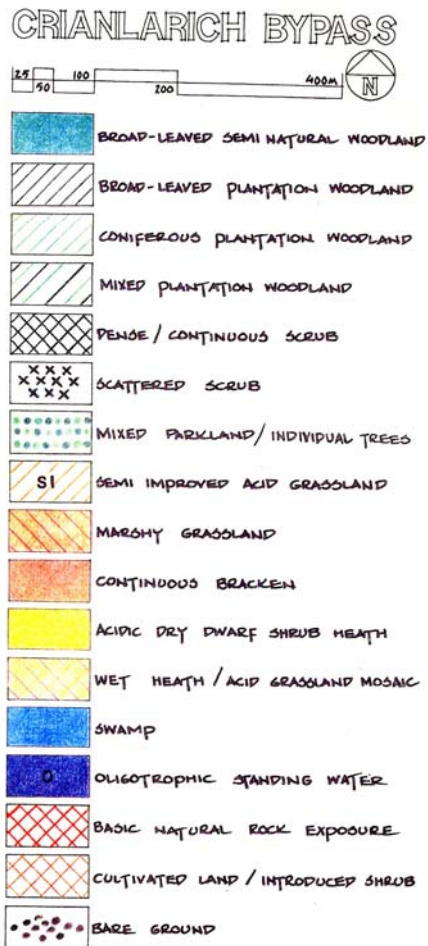 CRIANLARICH BYPASS
25 50 100 200 400M N
BROAD-LEAVED SEMI NATURAL WOODLAND
BROAD-LEAVED PLANTATION WOODLAND
CONIFEROUS PLANTATION WOODLAND
MIXED PLANTATION WOODLAND
DENSE/CONTINUOUS SCRUB
SCATTERED SCRUB
MIXED PARKLAND/INDIVIDUAL TREES
SI SEMI IMPROVED ACID GRASSLAND
MARSHY GRASSLAND
CONTINUOUS BRACKEN
ACIDIC DRY DWARF SHRUB HEATH
WET HEATH/ACID GRASSLAND MOSAIC
SWAMP
O OLIGOTROPHIC STANDING WATER
BASIC NATURAL ROCK EXPOSURE
CULTIVATED LAND/INTRODUCED SHRUB
BARE GROUND